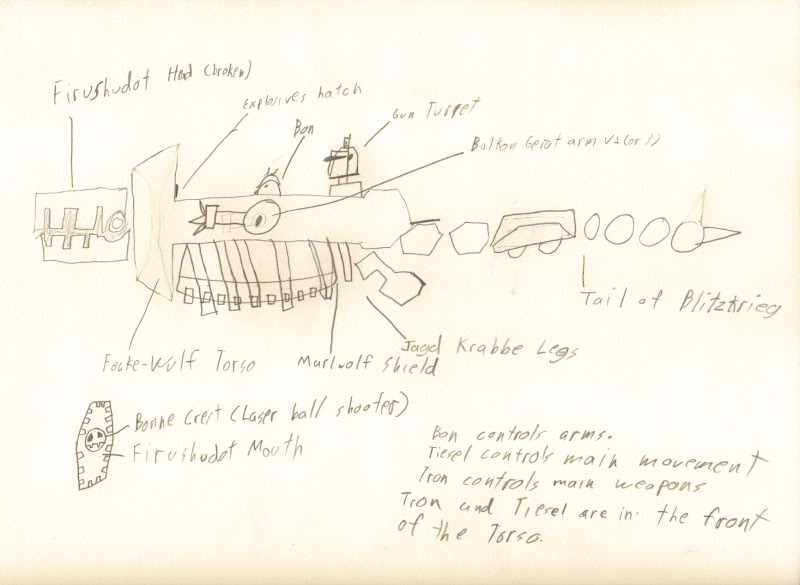 Firushudot Head (broken)
Explosives hatch
Bon
Gun Turret
Balkon Gerat arm
Tail of Blitzkrieg
Focke-Wulf Torso
Marlwolf Shield
Jagd Krabbe Legs
Bonne Crest (Laser ball shooter)
Firushudot Mouth
Bon controls arms.
Tiesel controls main movement
Tron controls main weapons
Tron and Tiesel are in the front
of the Torso.